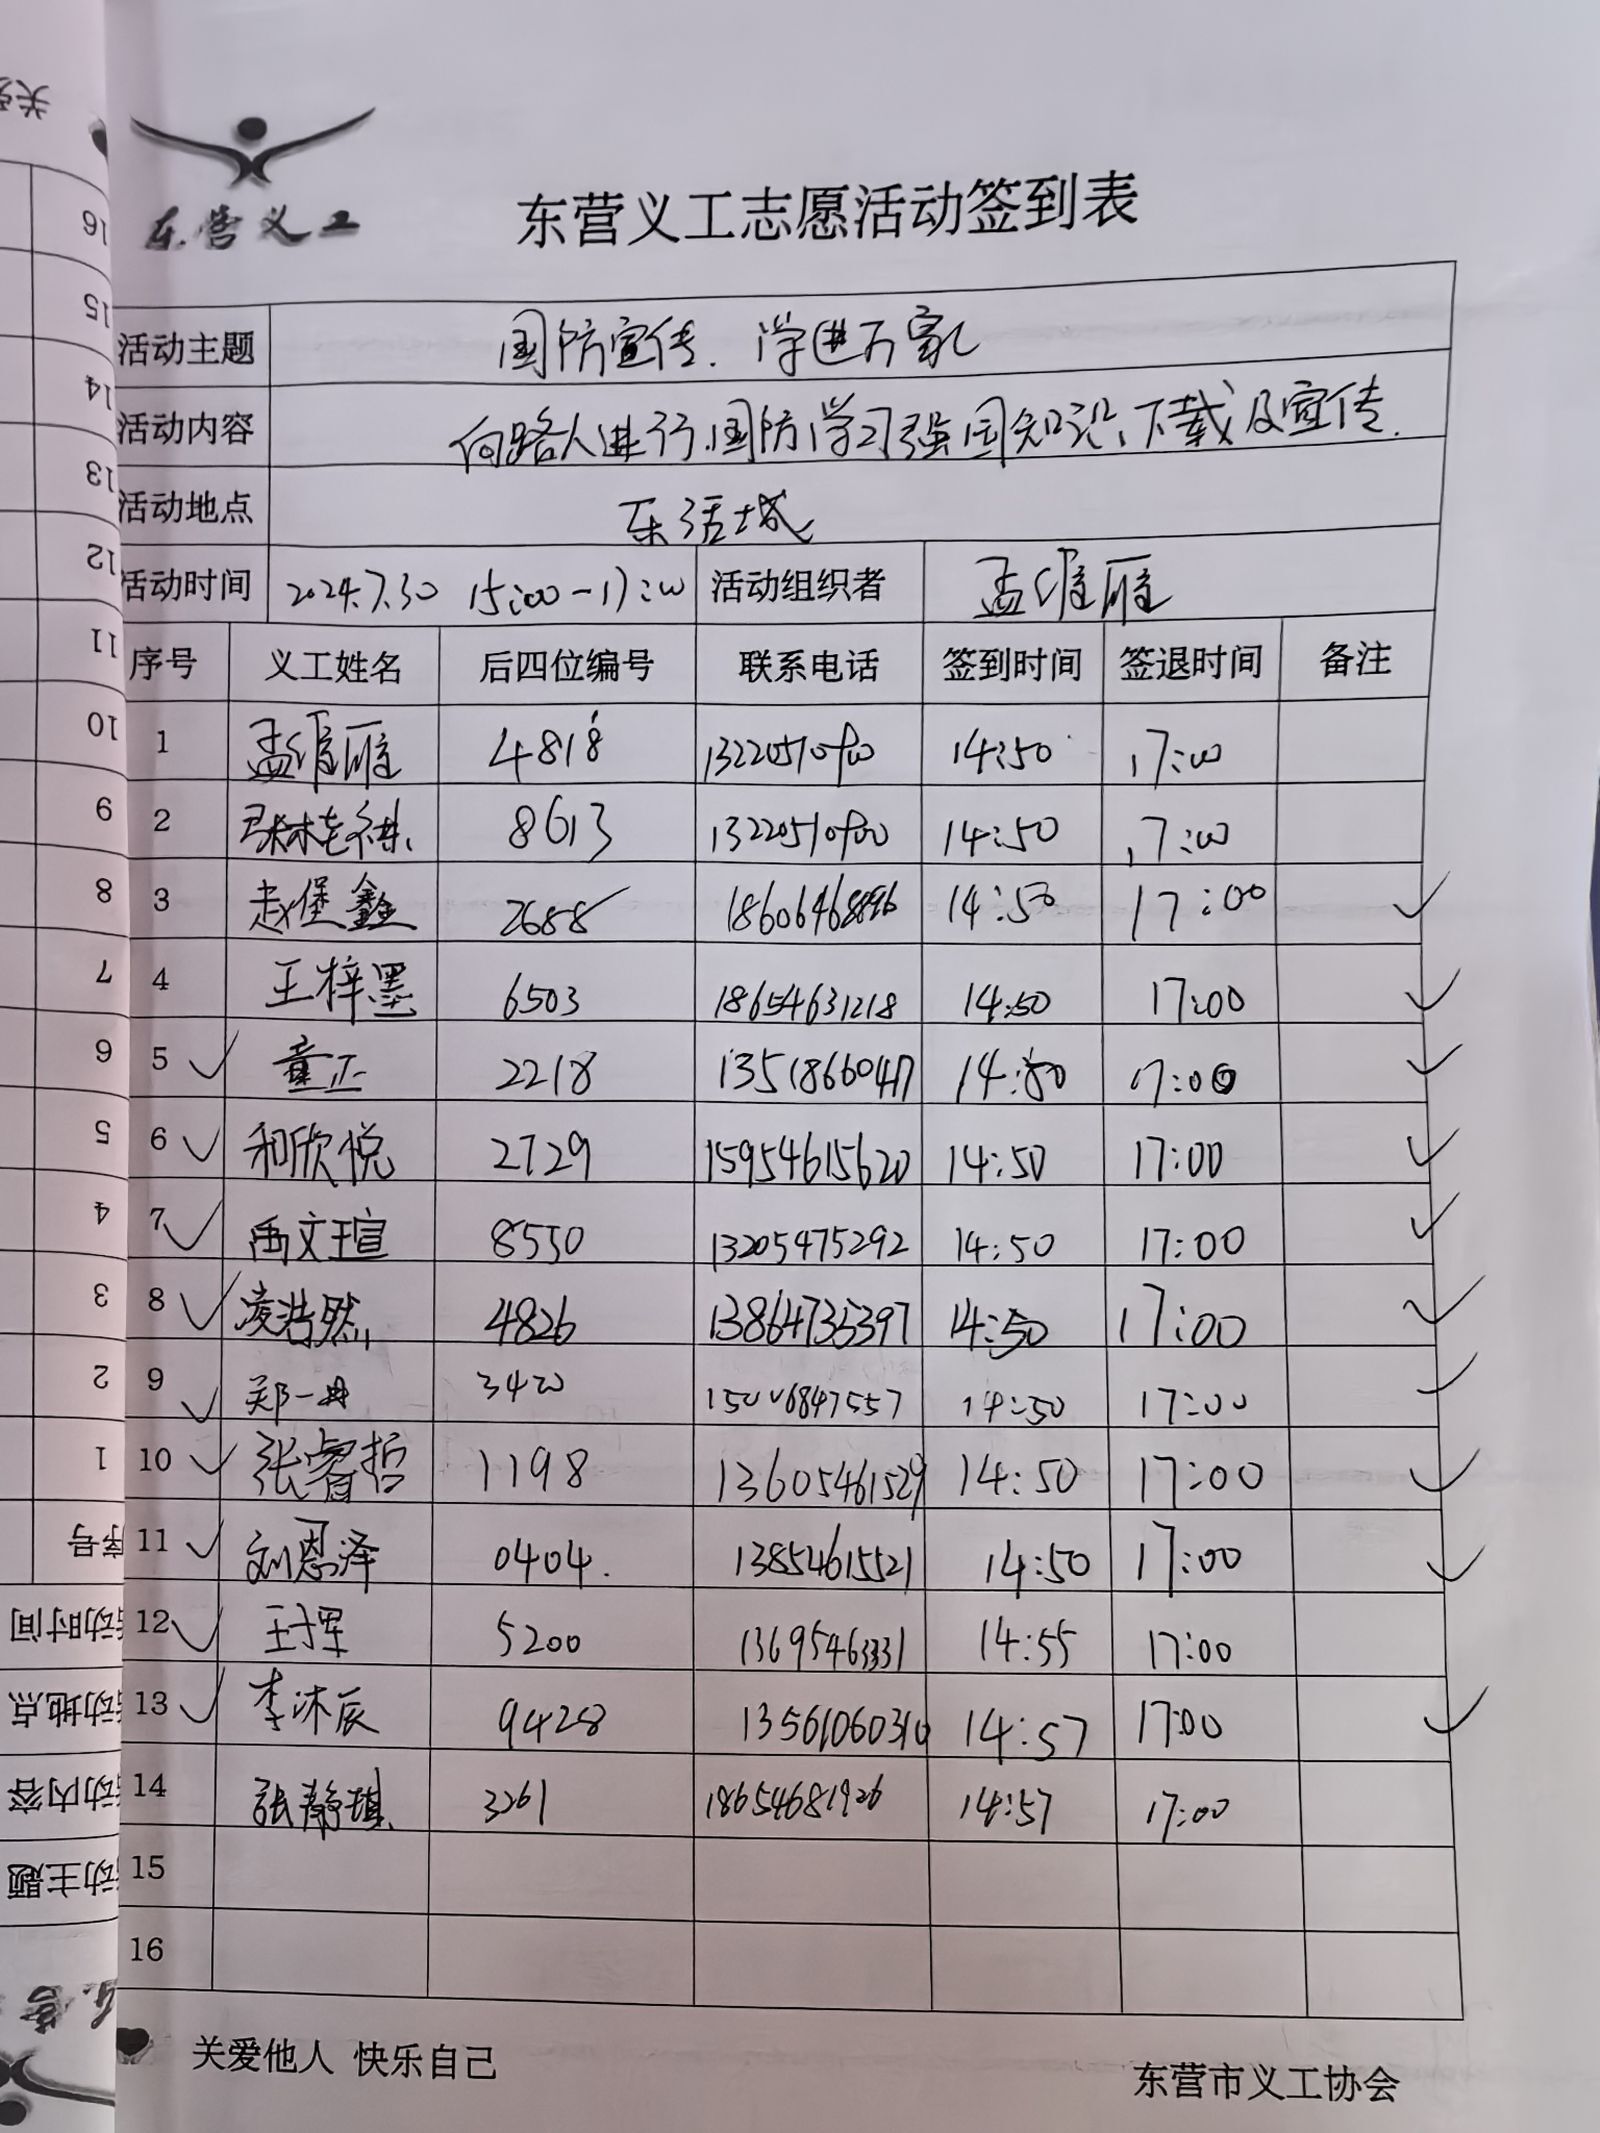 东营义工
东营义工志愿活动签到表
活动主题 国防宣传. 学进万家
活动内容 向路人进行国防学习强国知识、下载及宣传.
活动地点 东活城
活动时间 2024.7.30 15:00-17:00 活动组织者 孟维雁
序号 义工姓名 后四位编号 联系电话 签到时间 签退时间 备注
1 孟维雁 4818 14:50 17:00
2 8613 14:50 17:00
3 赵堡鑫 2688 14:50 17:00
4 王梓墨 6503 18654631218 14:50 17:00
5 童正 2218 13518660417 14:50 17:00
6 和欣悦 2729 15954615620 14:50 17:00
7 禹文瑄 8550 13205475292 14:50 17:00
8 凌浩然 4826 13864735397 14:50 17:00
9 郑一冉 3420 15006847557 14:50 17:00
10 张睿哲 1198 13605461529 14:50 17:00
11 刘恩泽 0404. 13854615521 14:50 17:00
12 王挥 5200 13695463331 14:55 17:00
13 李沐辰 9428 13561060310 14:57 17:00
14 张静琪 3261 18654681926 14:57 17:00
15
16
关爱他人 快乐自己
东营市义工协会